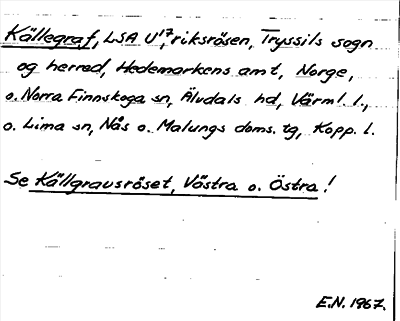 Källegraf, LSA U'17, riksrösen, Tryssils sogn
og herred, Hedemarkens amt, Norge,
o. Norra Finnskoga sn, Älvdals hd, Värml. l.,
o. Lima sn, Nås o. Malungs doms. tg, Kopp. l.
Se Källgrausröset, Västra o. Östra!
E.N. 1967.